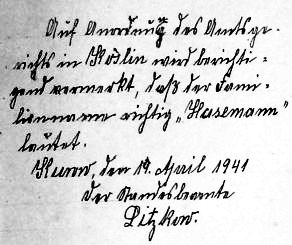 Auf Anordnung des Amtsge-
richts in Köslin wird berichti-
gend vermerkt, daß der Fami-
lienname richtig „Hasemann"
lautet.
Kurow, den 19. April 1941
Der Standesbeamte
Litzkow.